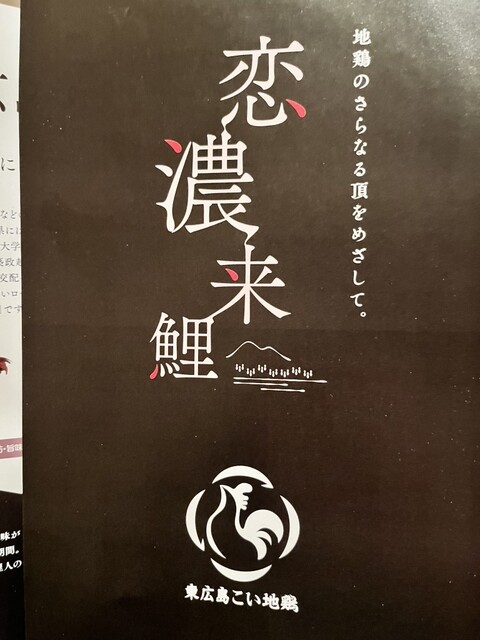 地鶏のさらなる頂をめざして。
恋
濃
来
鯉
東広島こい地鶏